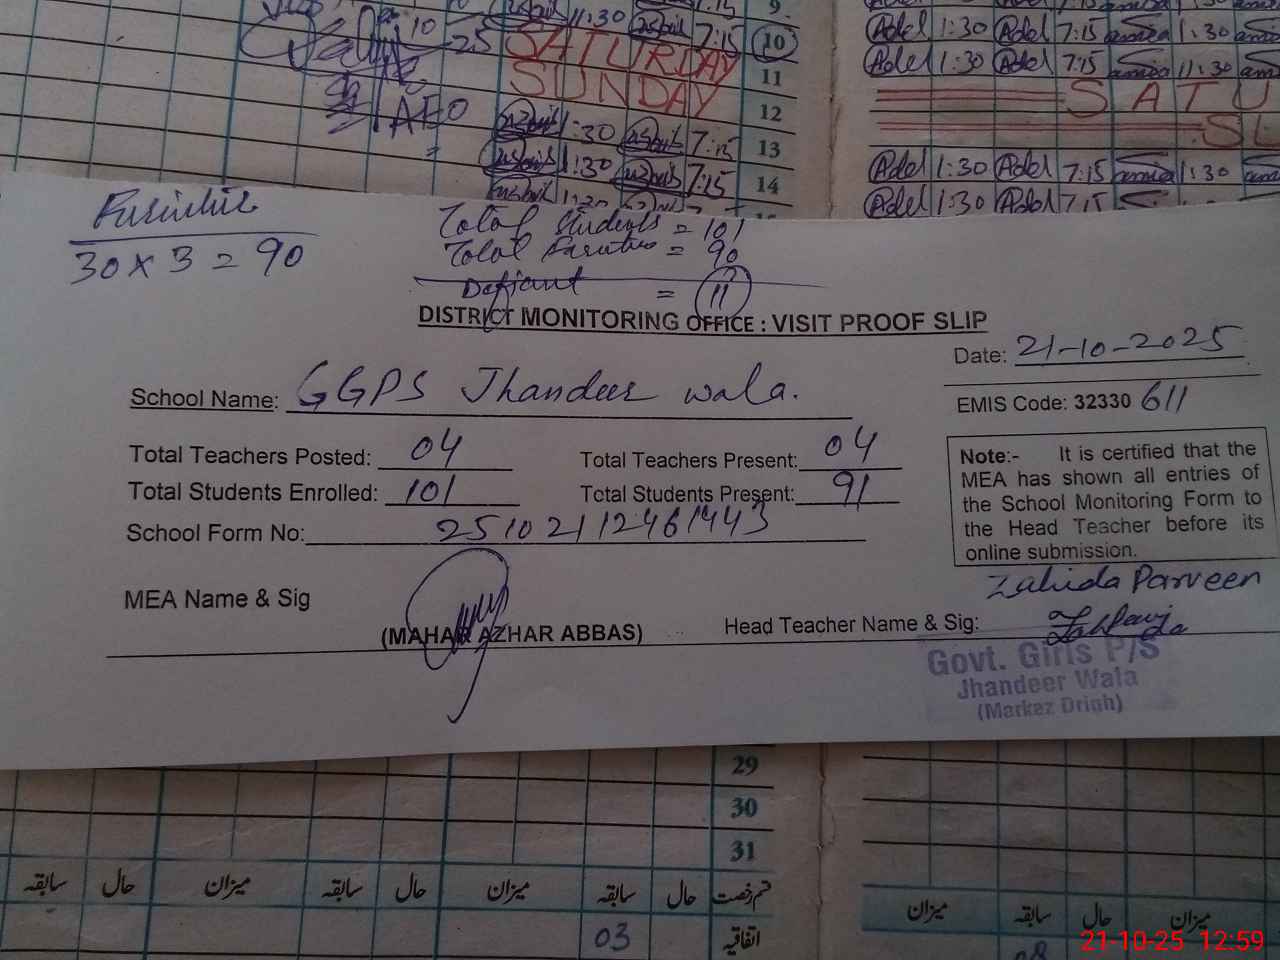 11:30 7:15 9
10
25 SATURDAY 11
SUNDAY 12
AEO
1:30 7:15 13
1:30 7:15 14
Adel 1:30 Adel 7:15 1:30
Adel 1:30 Adel 7:15 11:30
SATU
SU
Adel 1:30 Adel 7:15 1:30
Adel 1:30 Adel 7:15
30 x 3 = 90
Total Students = 101
Total = 90
Defiant = 11
DISTRICT MONITORING OFFICE : VISIT PROOF SLIP
Date: 21-10-2025
School Name: GGPS Jhandeer wala.
EMIS Code: 32330 611
Total Teachers Posted: 04 Total Teachers Present: 04
Total Students Enrolled: 101 Total Students Present: 91
School Form No: 25102112461443
Note:- It is certified that the
MEA has shown all entries of
the School Monitoring Form to
the Head Teacher before its
online submission.
MEA Name & Sig
(MAHAR AZHAR ABBAS)
Zahida Parveen
Head Teacher Name & Sig:
Govt. Girls P/S
Jhandeer Wala
(Markaz Drigh)
29
30
31
قسم رخصت حال سابقہ میزان حال سابقہ میزان حال سابقہ
میزان حال سابقہ میزان
اتفاقیہ 03
08
21-10-25 12:59